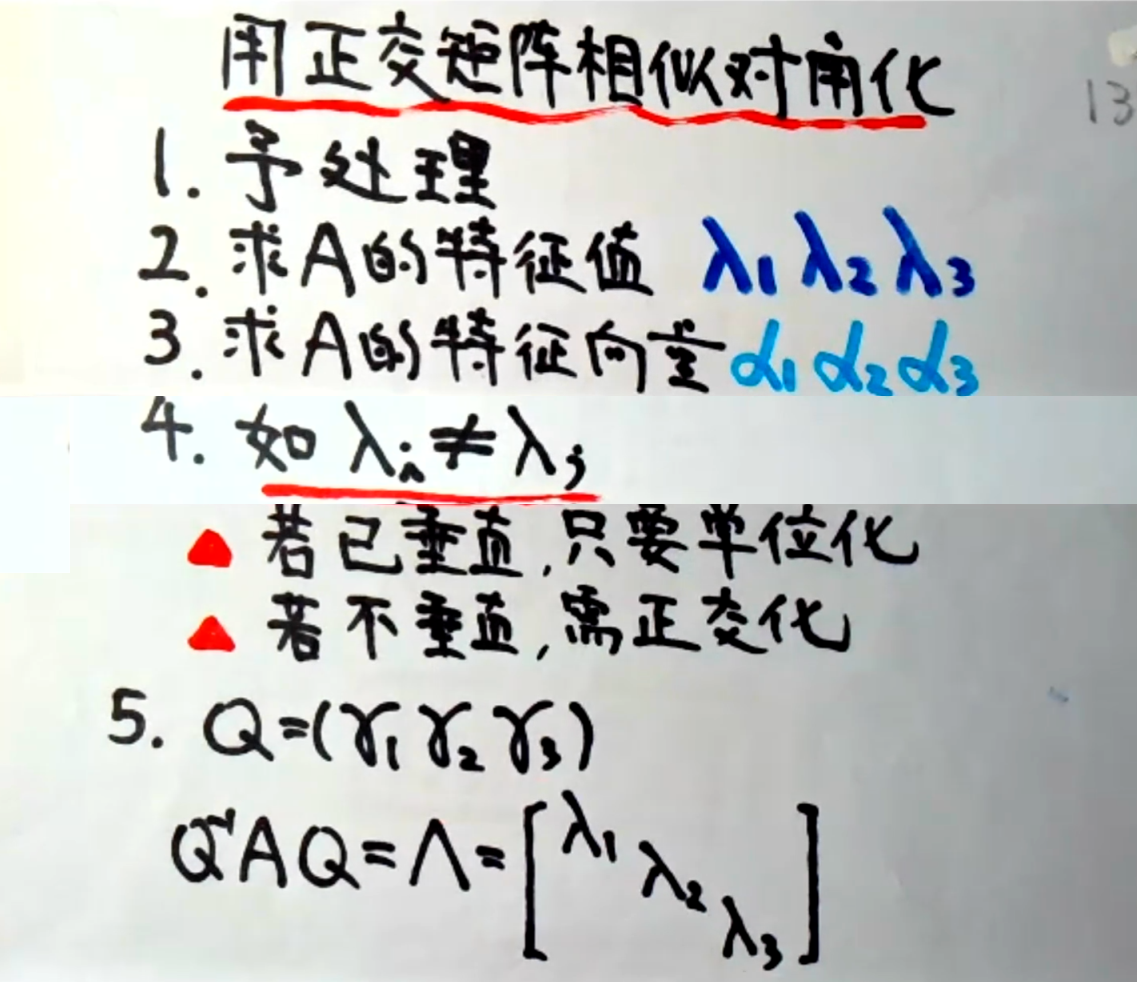 用正交矩阵相似对角化
13
1. 予处理
2. 求A的特征值 λ₁ λ₂ λ₃
3. 求A的特征向量 α₁ α₂ α₃
4. 如 λᵢ ≠ λⱼ
▲ 若已垂直,只要单位化
▲ 若不垂直,需正交化
5. Q=(γ₁ γ₂ γ₃)
Q⁻¹AQ=Λ=[λ₁ λ₂ λ₃]